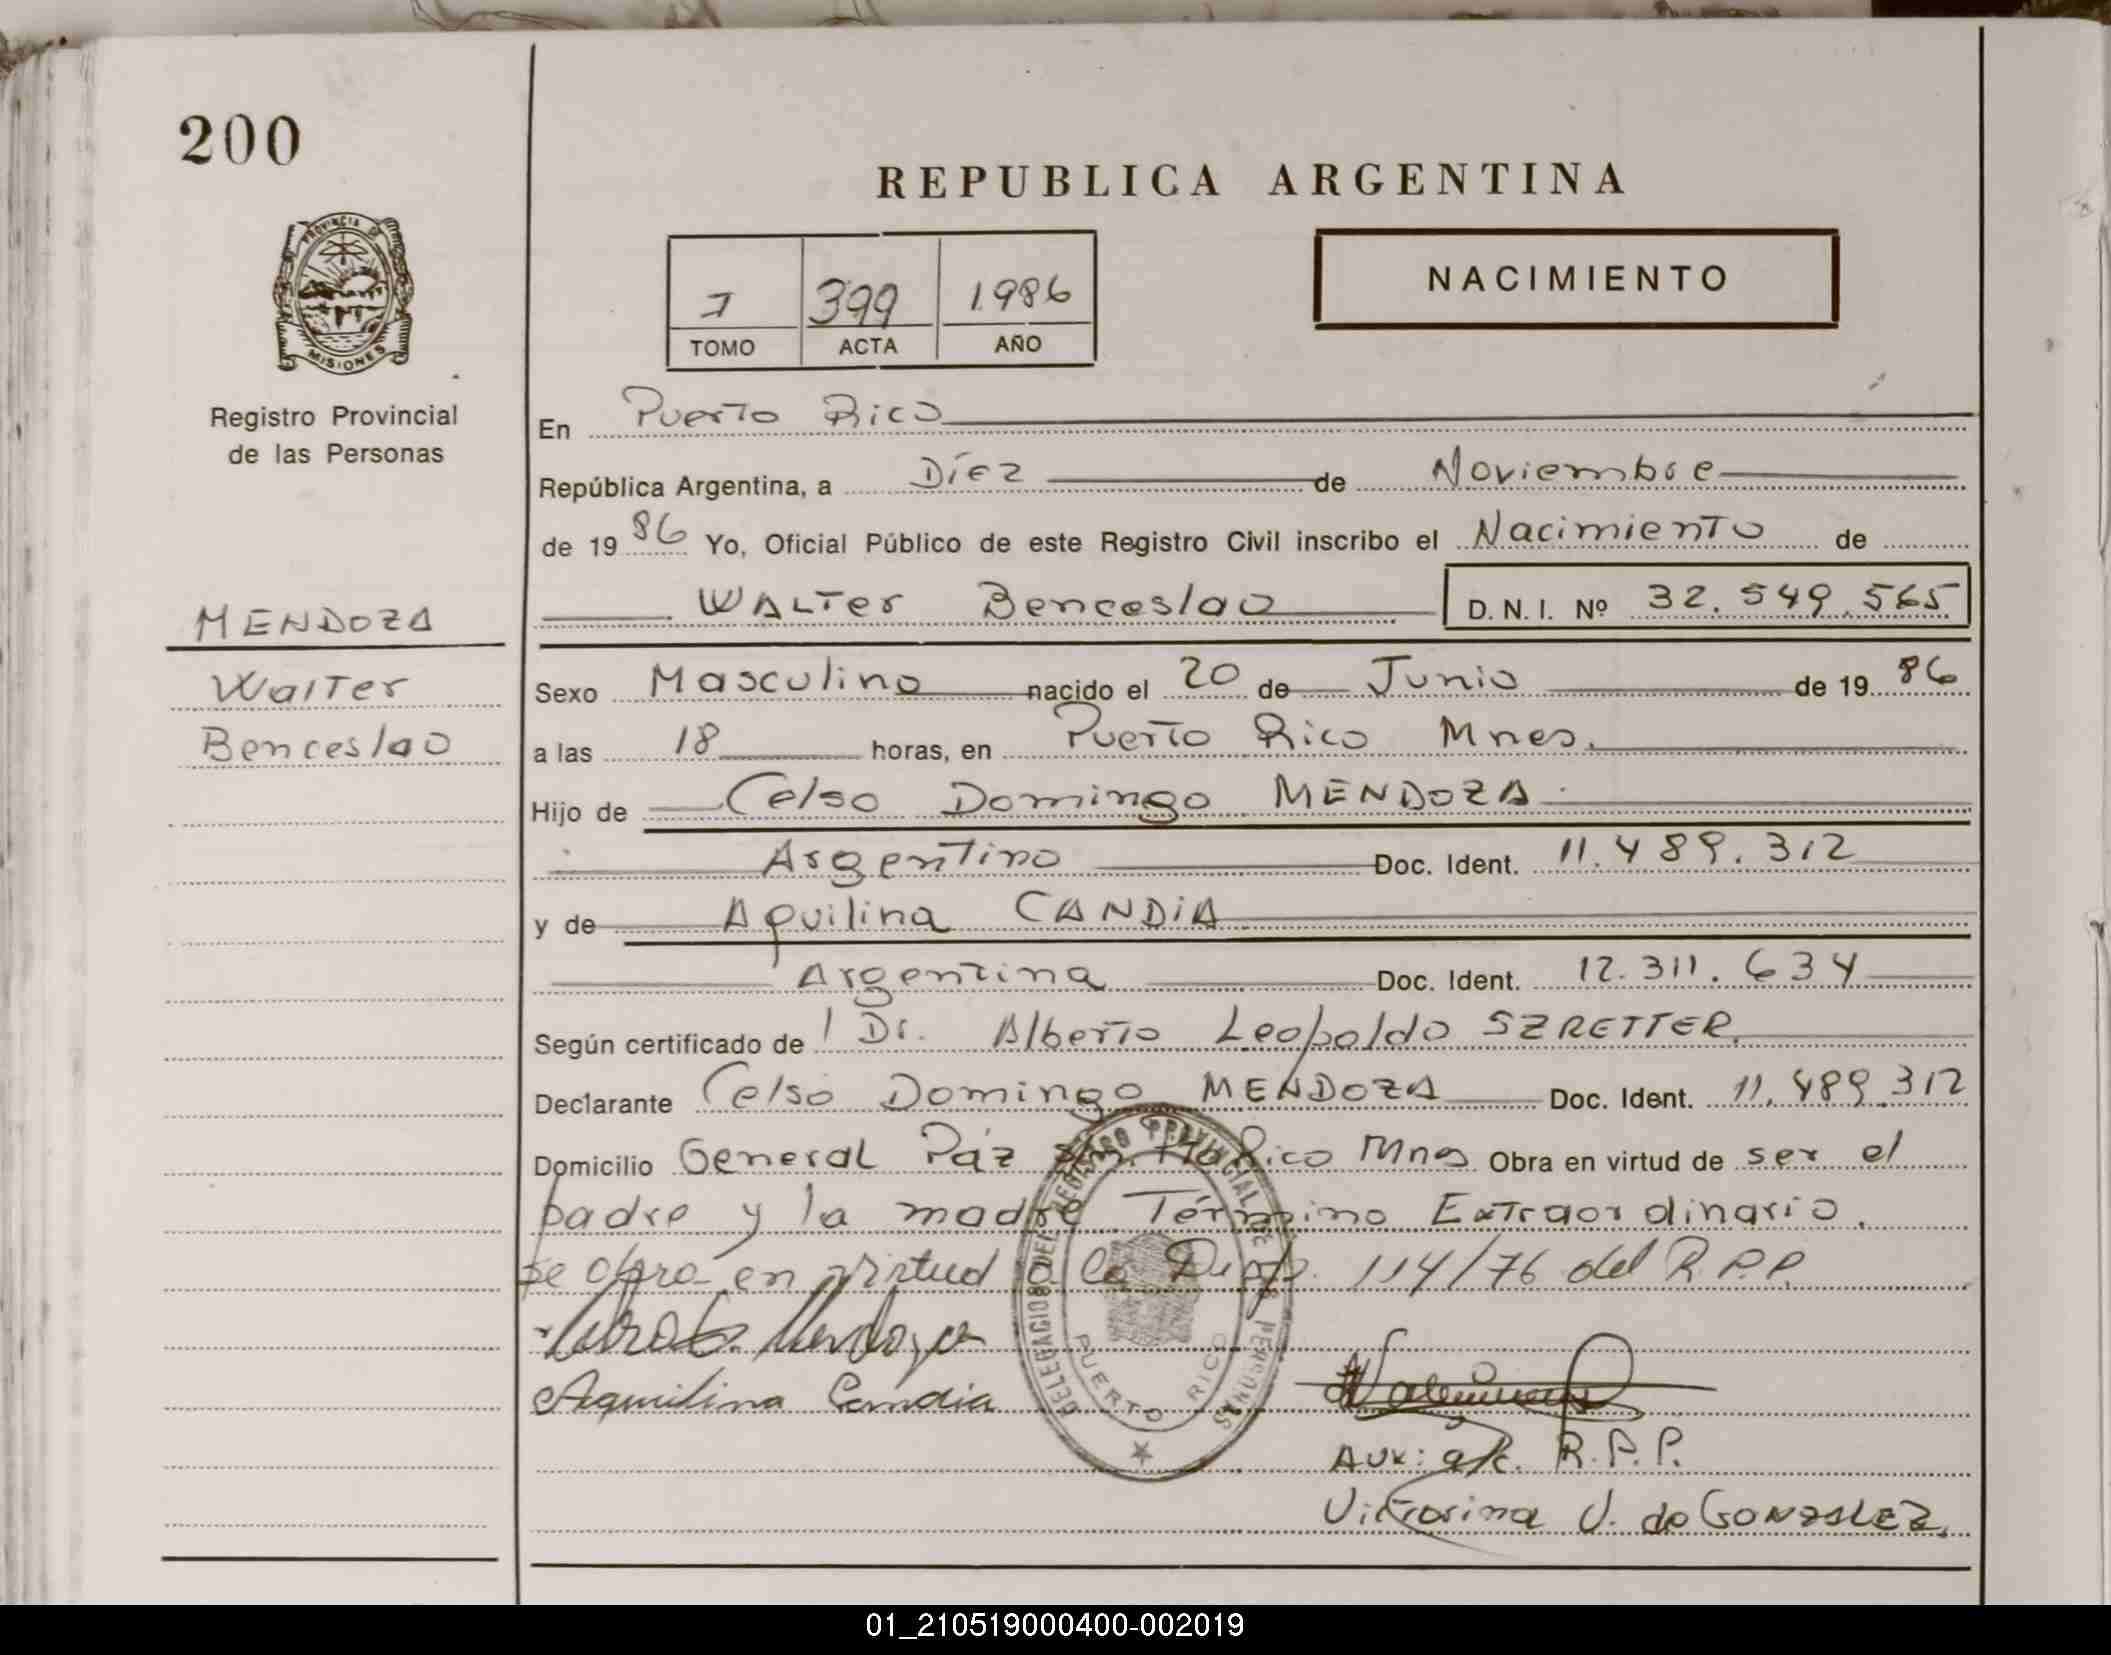 200
REPUBLICA ARGENTINA
PROVINCIA DE
MISIONES
I 399 1986
TOMO ACTA AÑO
NACIMIENTO
Registro Provincial
de las Personas
MENDOZA
Walter
Benceslao
En Puerto Rico
República Argentina, a Díez de Noviembre
de 19 86 Yo, Oficial Público de este Registro Civil inscribo el Nacimiento de
WALTer Benceslao D. N. I. Nº 32.549.565
Sexo Masculino nacido el 20 de Junio de 19 86
a las 18 horas, en Puerto Rico Mnes.
Hijo de Celso Domingo MENDOZA
Argentino Doc. Ident. 11.489.312
y de Aquilina CANDIA
Argentina Doc. Ident. 12.311.634
Según certificado de Dr. Alberto Leopoldo SZRETTER
Declarante Celso Domingo MENDOZA Doc. Ident. 11.489.312
Domicilio General Páz Rico Mnes Obra en virtud de ser el
padre y la madre Término Extraordinario.
se obra en virtud a la Disp. 114/76 del R.P.P.
Mendoza
Aquilina Candia
DELEGACION DEL REGISTRO PROVINCIAL DE LAS PERSONAS
PUERTO RICO
Aux: a/c. R.P.P.
Victorina V. de GONZALEZ.
01_210519000400-002019